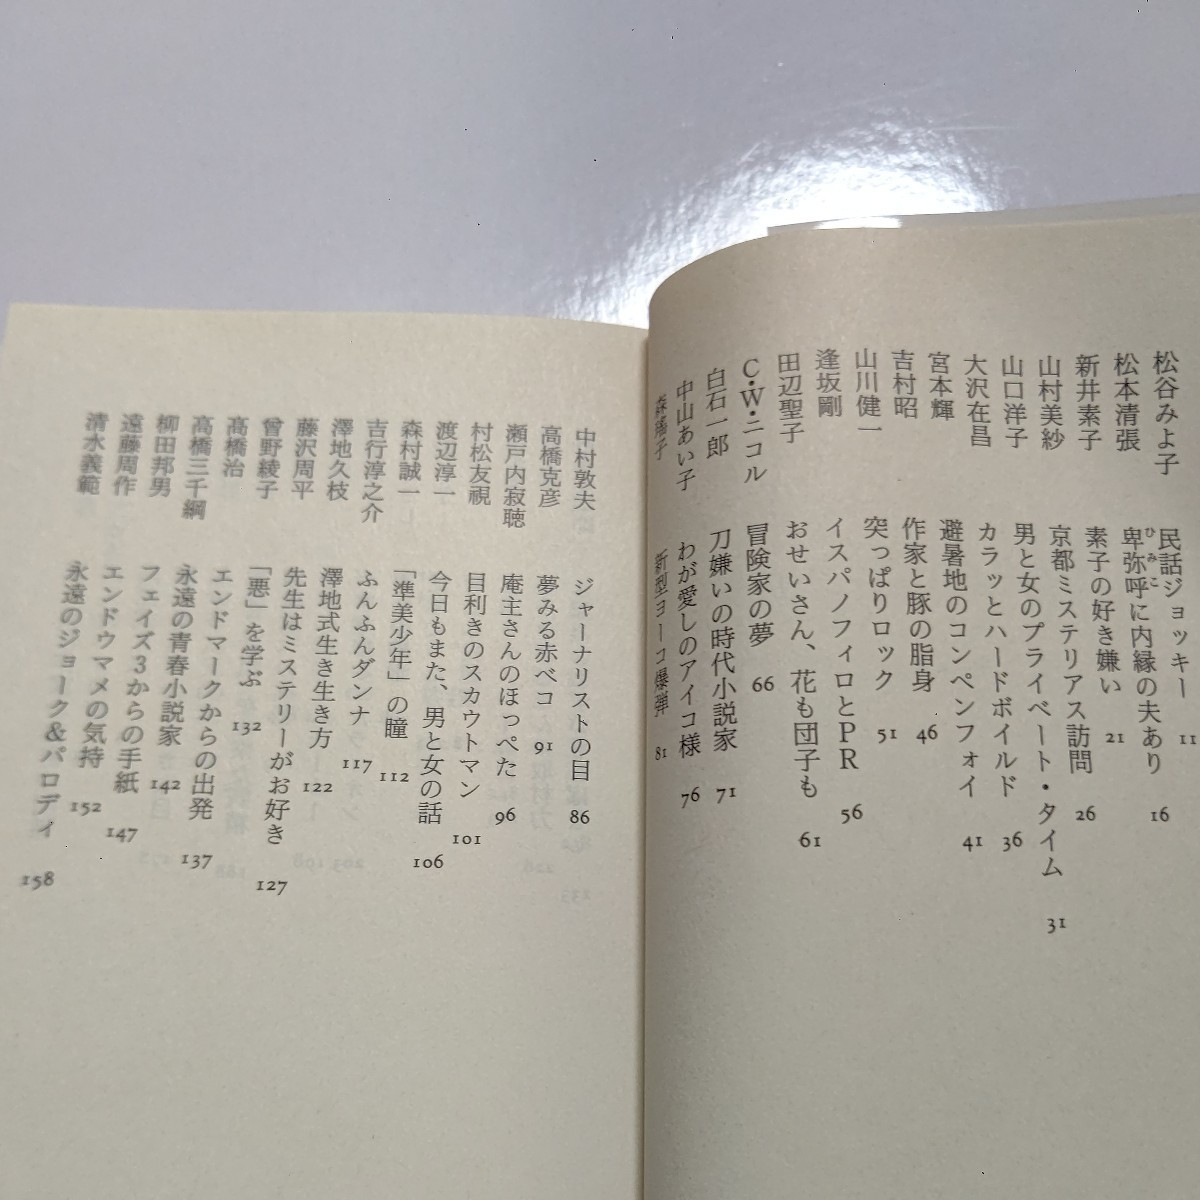 松谷みよ子 民話ジョッキー 11
松本清張 卑弥呼に内縁の夫あり 16
ひみこ
新井素子 素子の好き嫌い 21
山村美紗 京都ミステリアス訪問 26
山口洋子 男と女のプライベート・タイム 31
大沢在昌 カラッとハードボイルド 36
宮本輝 避暑地のコンペンフォイ 41
吉村昭 作家と豚の脂身 46
山川健一 突っぱりロック 51
逢坂剛 イスパノフィロとPR 56
田辺聖子 おせいさん、花も団子も 61
C・W・ニコル 冒険家の夢 66
白石一郎 刀嫌いの時代小説家 71
中山あい子 わが愛しのアイコ様 76
森瑤子 新型ヨーコ爆弾 81
中村敦夫 ジャーナリストの目 86
高橋克彦 夢みる赤ベコ 91
瀬戸内寂聴 庵主さんのほっぺた 96
村松友視 目利きのスカウトマン 101
渡辺淳一 今日もまた、男と女の話 106
森村誠一 「準美少年」の瞳 112
吉行淳之介 ふんふんダンナ 117
澤地久枝 澤地式生き生き方 122
藤沢周平 先生はミステリーがお好き 127
曾野綾子 「悪」を学ぶ 132
高橋治 エンドマークからの出発 137
高橋三千綱 永遠の青春小説家 142
柳田邦男 フェイズ3からの手紙 147
遠藤周作 エンドウマメの気持 152
清水義範 永遠のジョーク&パロディ 158